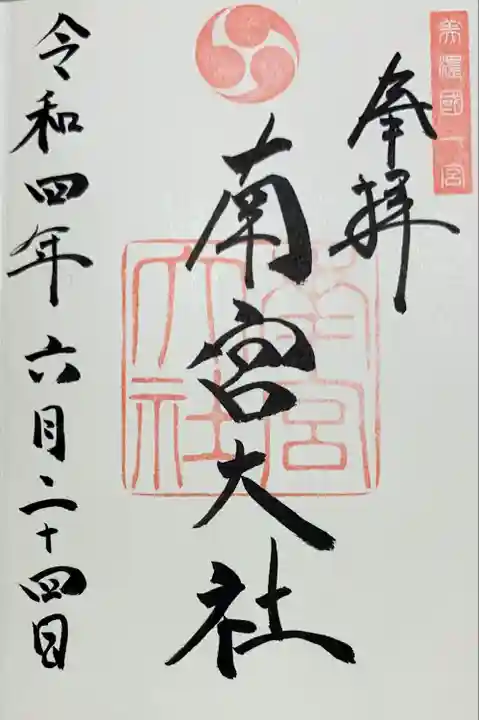 美濃國一宮
奉拝
南宮大社
南宮大社
令和四年六月二十四日